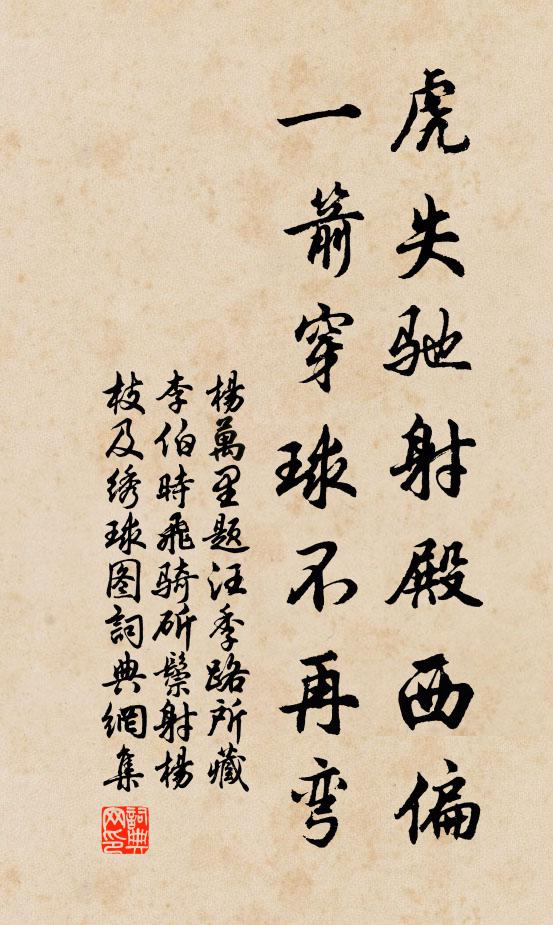 虎失驰射殿西偏
一箭穿球不再弯
楊萬里題汪季路所藏
李伯時飛騎斫鬃射楊
枝及绣球图詞典網集
詞典网印